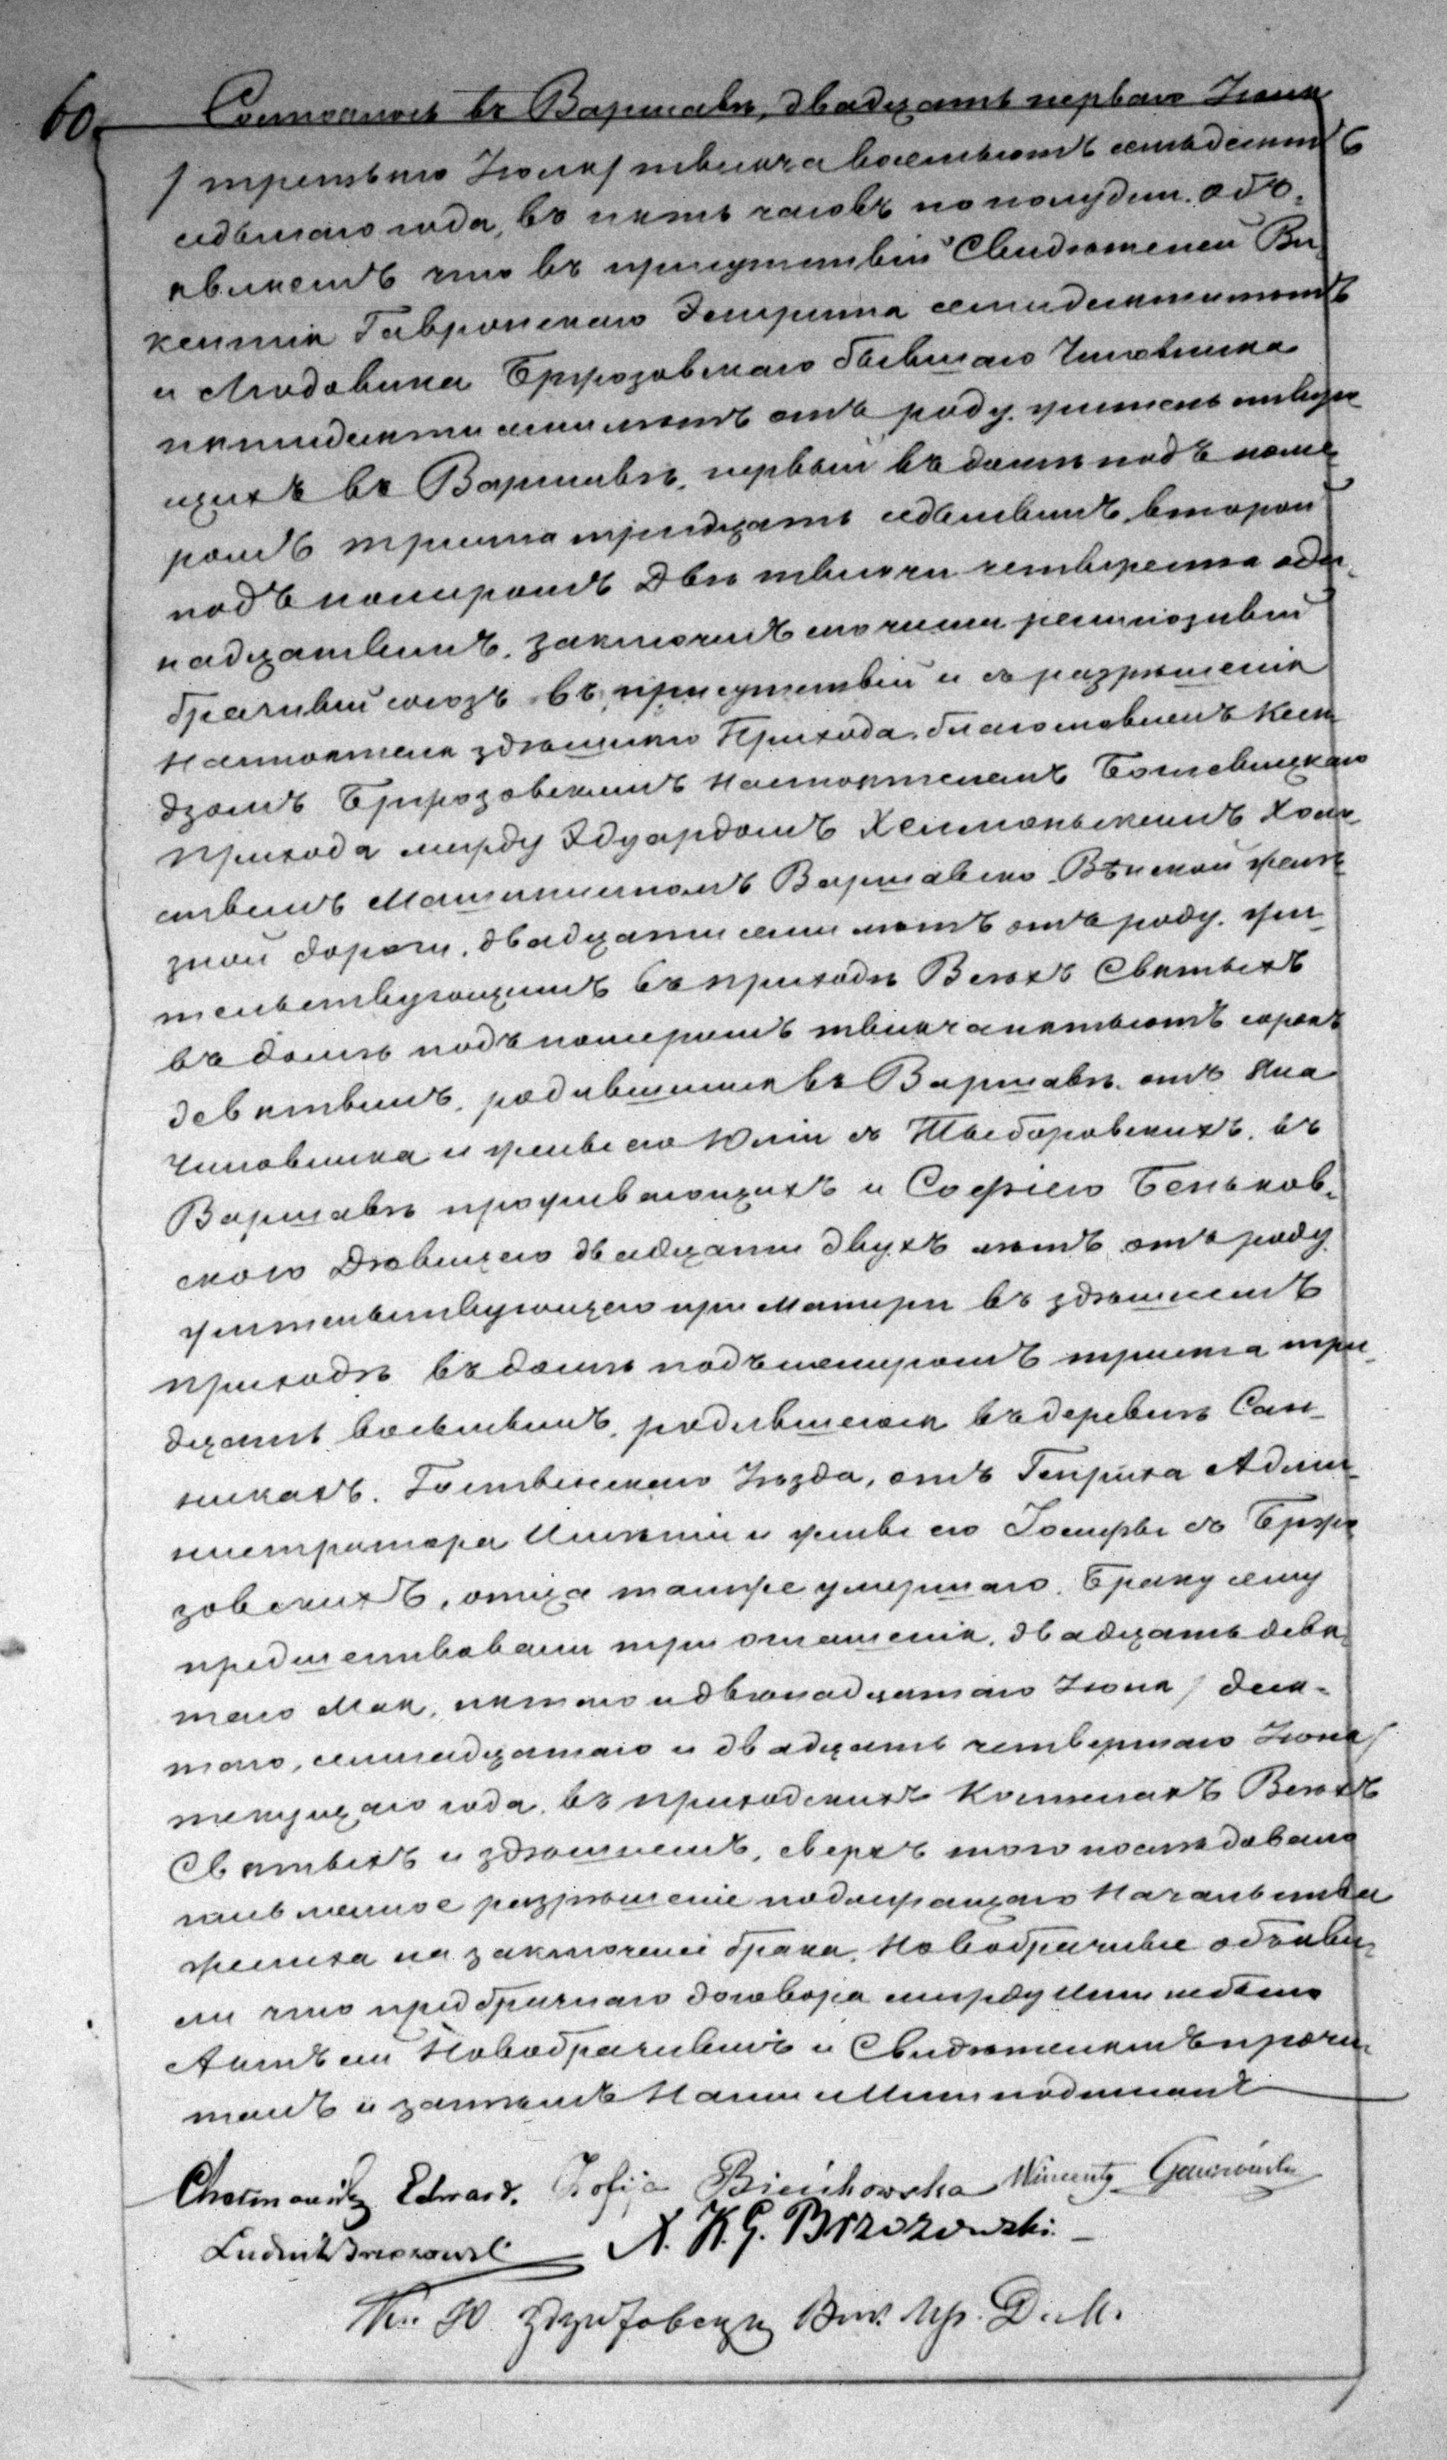 60.
Состоялось въ Варшавѣ, двадцать перваго Іюня
/ третьяго Іюля / тысяча восемьсотъ семьдесятъ
седьмаго года, въ пять часовъ по полудни. Объ-
являемъ что въ присутствіи Свидѣтелей Ви-
кентія Гавронскаго Эмерита семидесяти лѣтъ
и Людовика Бржозовскаго бывшаго Чиновника
пятидесяти семи лѣтъ отъ роду, жительствую-
щихъ въ Варшавѣ, первый въ домѣ подъ номе-
ромъ триста тридцать седьмымъ, второй
подъ номеромъ Двѣ тысячи четыреста оди-
надцатымъ, заключенъ сего числа религіозный
брачный союзъ въ присутствіи и съ разрѣшенія
Настоятеля здѣшняго Прихода, благословленъ Ксен-
дзомъ Бржозовскимъ Настоятелемъ
Прихода между Эдуардомъ Холо-
стымъ Машинистомъ Варшавско-Вѣнской желѣ-
зной дороги, двадцати семи лѣтъ отъ роду, жи-
тельствующимъ въ приходѣ Всѣхъ Святыхъ
въ домѣ подъ номеромъ тысяча пятьсотъ сорокъ
девятымъ, родившимся въ Варшавѣ, отъ Яна
Чиновника и жены его Юліи съ въ
Варшавѣ проживающихъ и Софіею Беньков-
скою Дѣвицею двадцати двухъ лѣтъ отъ роду
жительствующею при Матери въ здѣшнемъ
приходѣ въ домѣ подъ номеромъ триста три-
дцать восьмымъ, родившеюся въ деревнѣ Сан-
никахъ, Гостынскаго Уѣзда, отъ Генриха Адми-
нистратора Имѣнія и жены его Іосифы съ Бржо-
зовскихъ, отца также умершаго. Браку сему
предшествовали три оглашенія, двадцать девя-
таго Мая, пятаго и двѣнадцатаго Іюня / деся-
таго, семнадцатаго и двадцать четвертаго Іюня /
текущаго года, въ приходскихъ Костелахъ Всѣхъ
Святыхъ и здѣшнемъ, сверхъ того послѣдовало
письменное разрѣшеніе подлежащаго Начальства
жениха на заключеніе брака. Новобрачные объяви-
ли что предбрачнаго договора между Ими не было
Актъ сей Новобрачнымъ и Свидѣтелямъ прочи-
танъ и затѣмъ Нами и Ими подписанъ
Edward. Zofija Bieńkowska Wincenty Gawroński
Ludwik Brzozowski X. K. G. Brzozowski.
Кс. Ю. Вик. Пр. Д. М.